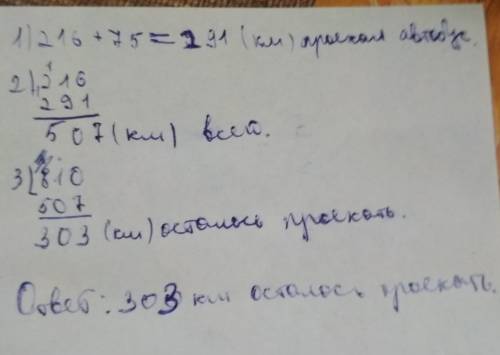 1) 216 + 75 = 291 (км) проехал автобус.
2) 216
291
507 (км) всего.
3) 810
507
303 (км) осталось проехать.
Ответ: 303 км осталось проехать.